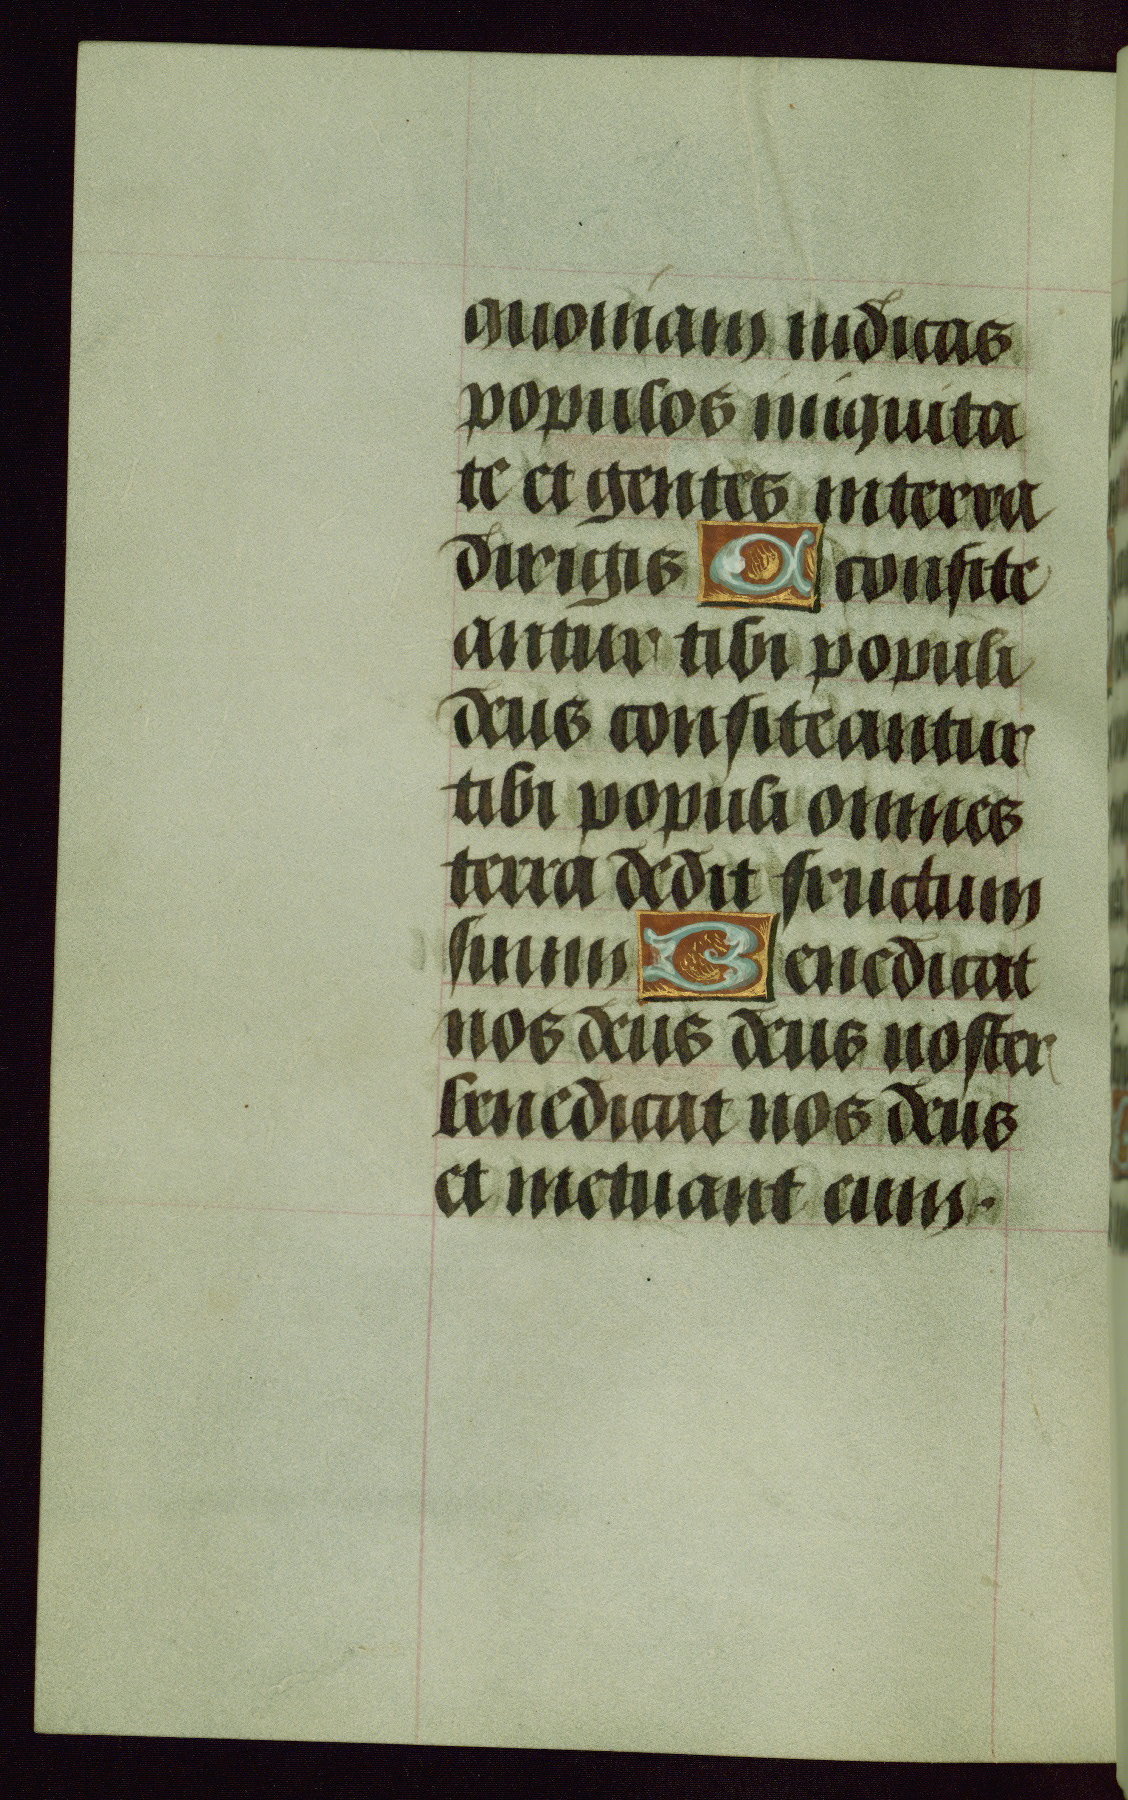 quoniam iudicas
populos iniquita
te et gentes in terra
dirigis C confite
antur tibi populi
deus confiteantur
tibi populi omnes
terra dedit fructum
suum Benedicat
nos deus deus noster
benedicat nos deus
et metuant eum.